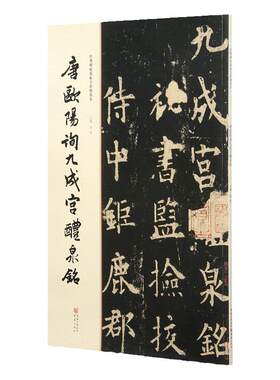 九成宮醴泉銘
祕書監撿挍
侍中鉅鹿郡
唐歐陽詢九成宮醴泉銘